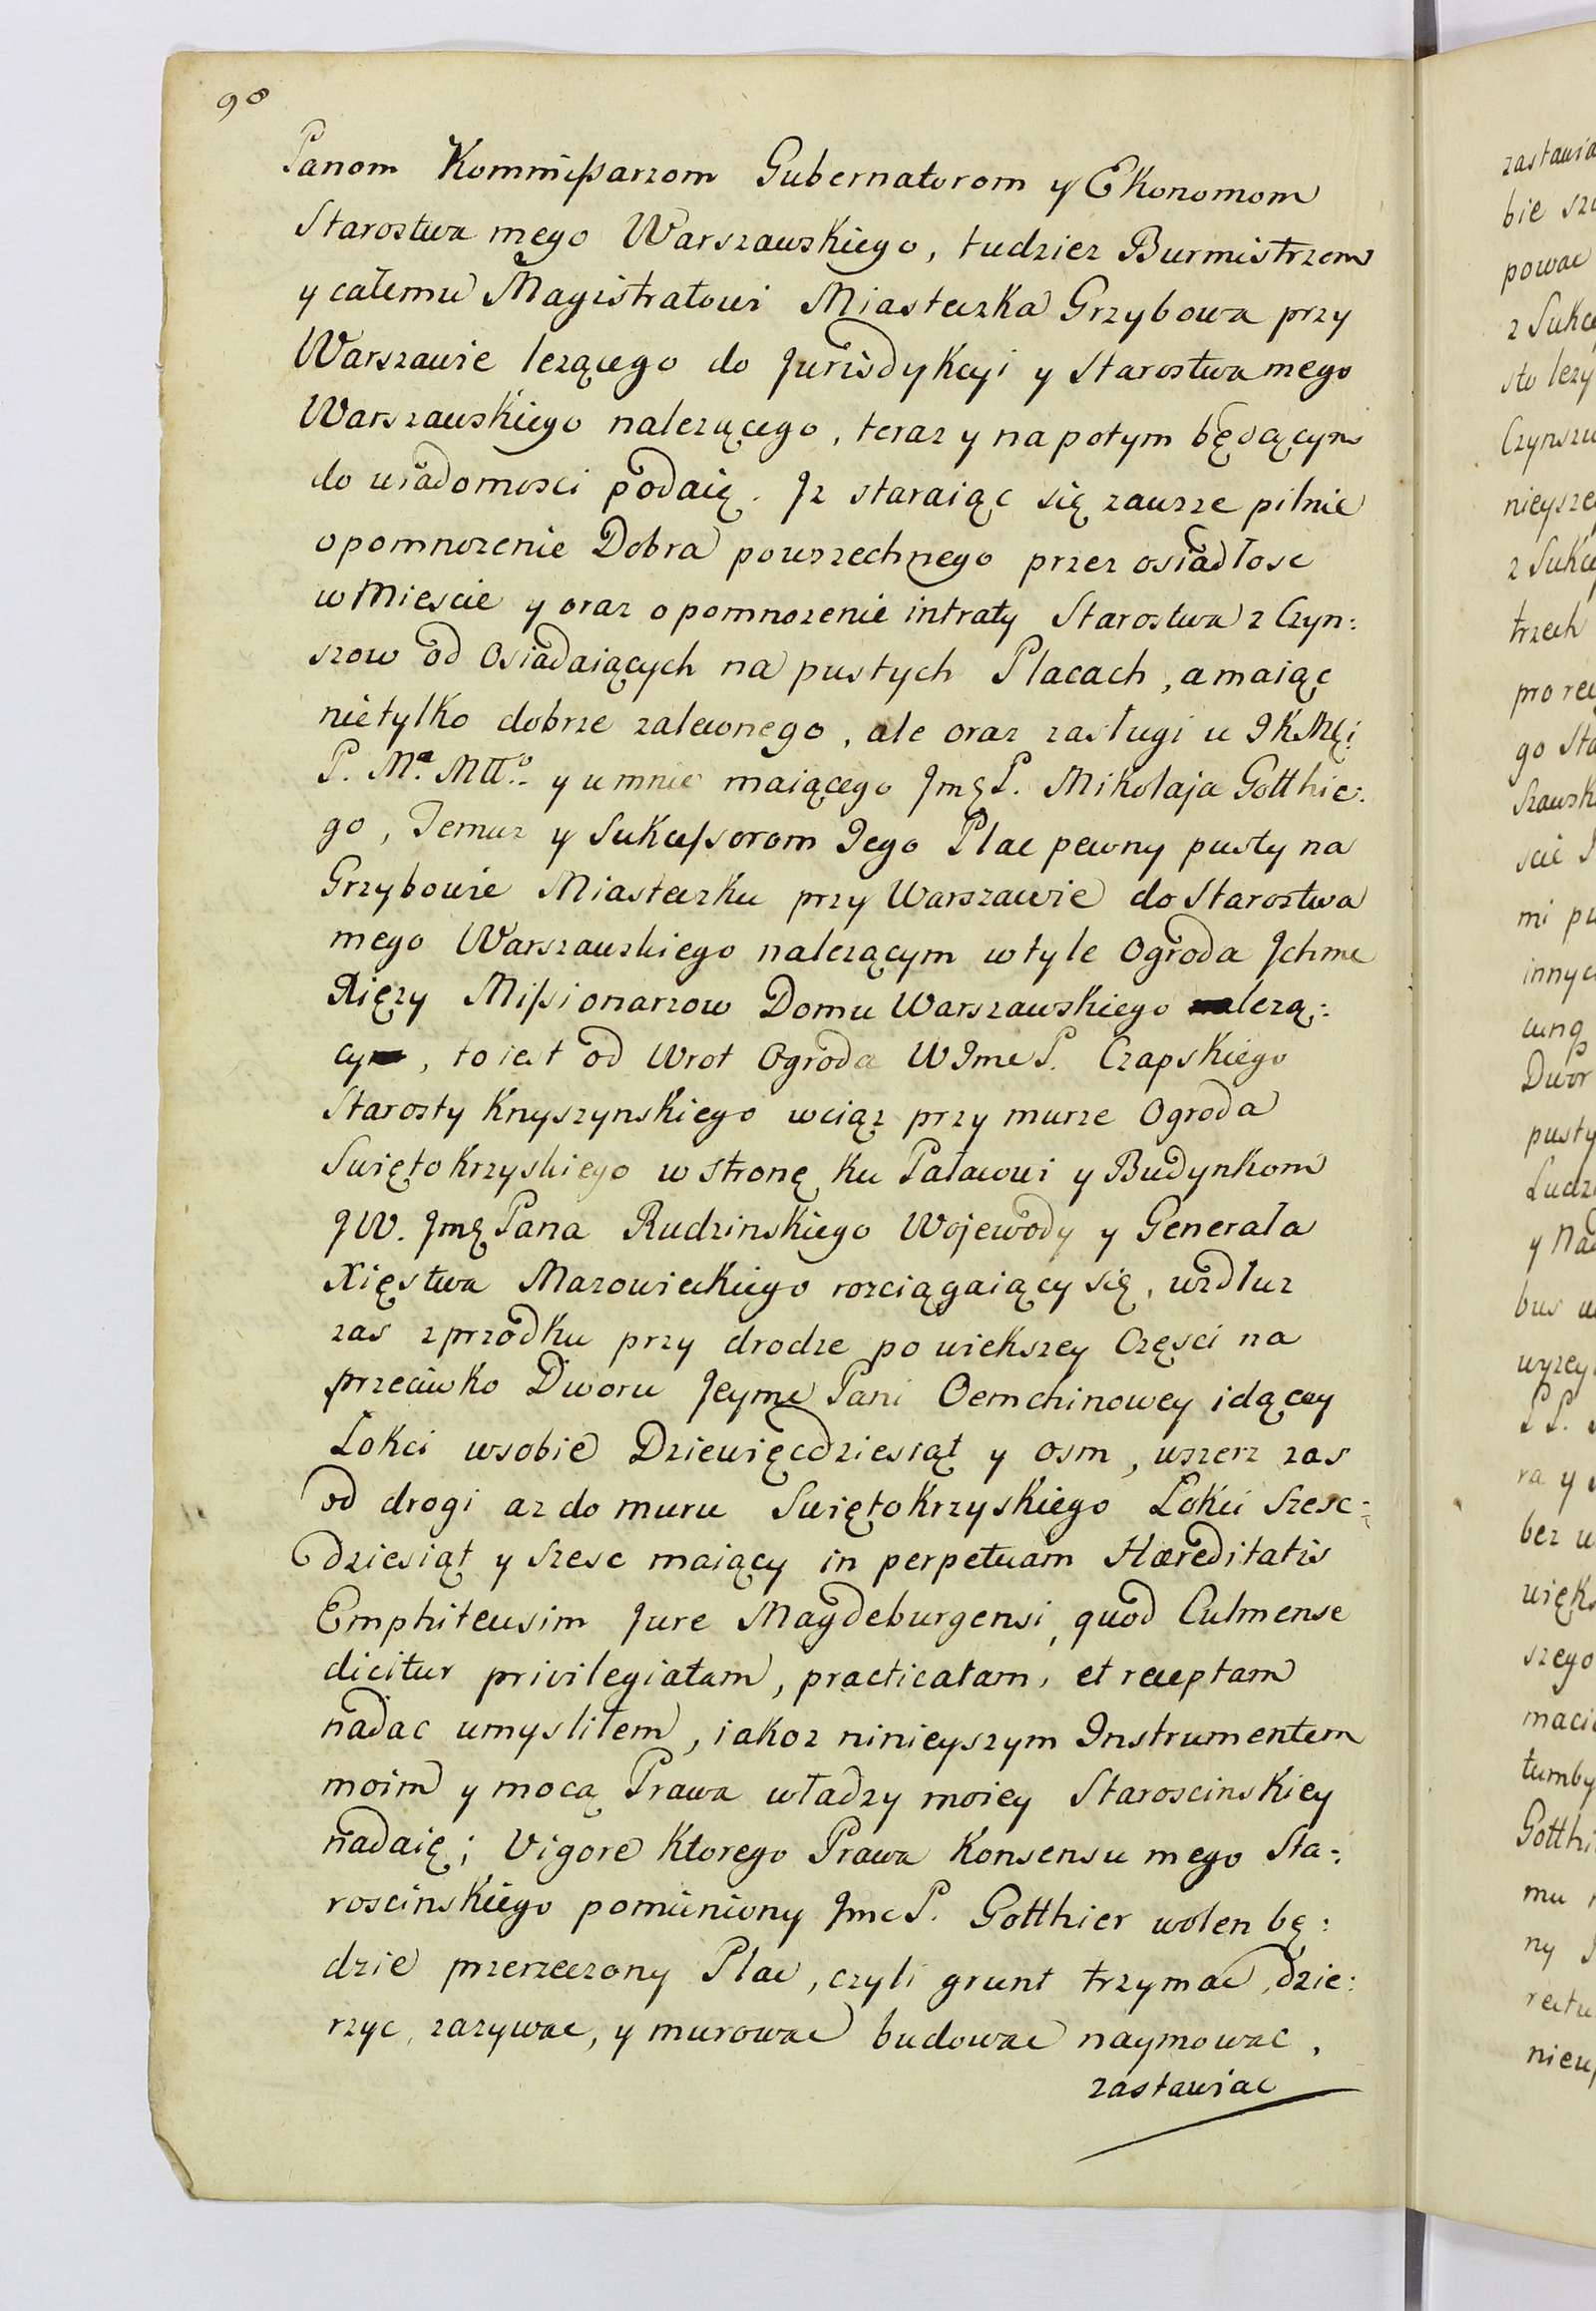 98
Panom Kommißarzom Gubernatorom y Ekonomom
Starostwa mego Warszawskiego, tudziez Burmistrzom
y całemu Magistratowi Miasteczka Grzybowa przy
Warszawie lezącego do Jurisdykcyi y Starostwa mego
Warszawskiego nalezącego, teraz y na potym będącym
do wiadomosci podaię. Jz staraiąc się zawsze pilnie
o pomnozenie Dobra powszechnego przez osiadłosc
w Miescie y oraz o pomnozenie intraty Starostwa z Czyn:
szow od Osiadaiących na pustych Placach, a maiąc
nietylko dobrze zalconego, ale oraz zasługi u JKMĘi
P. Mᵃ. Młłᵒ. y u mnie maiącego JmęP. Mikołaja Gotthie:
go, Jemuz y Sukceßorom Jego Plac pewny pusty na
Grzybowie Miasteczku przy Warszawie do Starostwa
mego Warszawskiego nalezącym w tyle Ogroda Jchmc
Xięzy Mißionarzow Domu Warszawskiego lezą:
cy, to iest od Wrot Ogroda WJmcP. Czapskiego
Starosty Knyszynskiego wciąz przy murze Ogroda
Swięto Krzyskiego w stronę ku Pałacowi y Budynkom
JW. Jmę Pana Rudzinskiego Wojewody y Generała
Xięstwa Mazowieckiego rozciągaiący się, wzdłuz
zas z przodku przy drodze po wiekszey Częsci na
przeciwko Dworu Jeymc Pani Oemchinowey idącey
Łokci wsobie Dziewięcdziesiąt y osm, wszerz zas
od drogi az do muru Swięto Krzyskiego Łokci Szesc:
dziesiąt y szesc maiący in perpetuam Hæreditatis
Emphiteusim Jure Magdeburgensi, quod Culmense
dicitur privilegiatam, practicatam, et receptam
nadac umysliłem, iakoz ninieyszym Instrumentem
moim y mocą Prawa władzy moiey Staroscinskiey
nadaię; Vigore Ktorego Prawa Konsensu mego Sta:
roscinskiego pomieniony JmcP. Gotthier wolen bę:
dzie przerzeczony Plac, czyli grunt trzymac, dzie:
rzyc, zazywac, y murowac budowac naymowac,
zastawiac